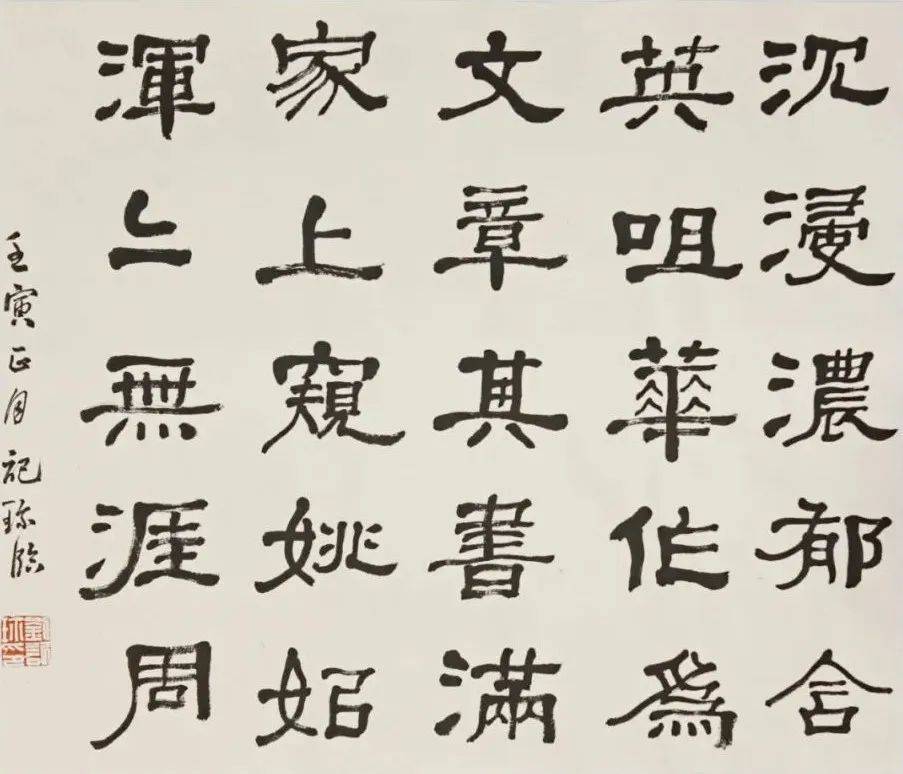 沉浸濃郁含
英咀華作爲
文章其書滿
家上窺姚姒
渾〻無涯周
壬寅正月記珎臨